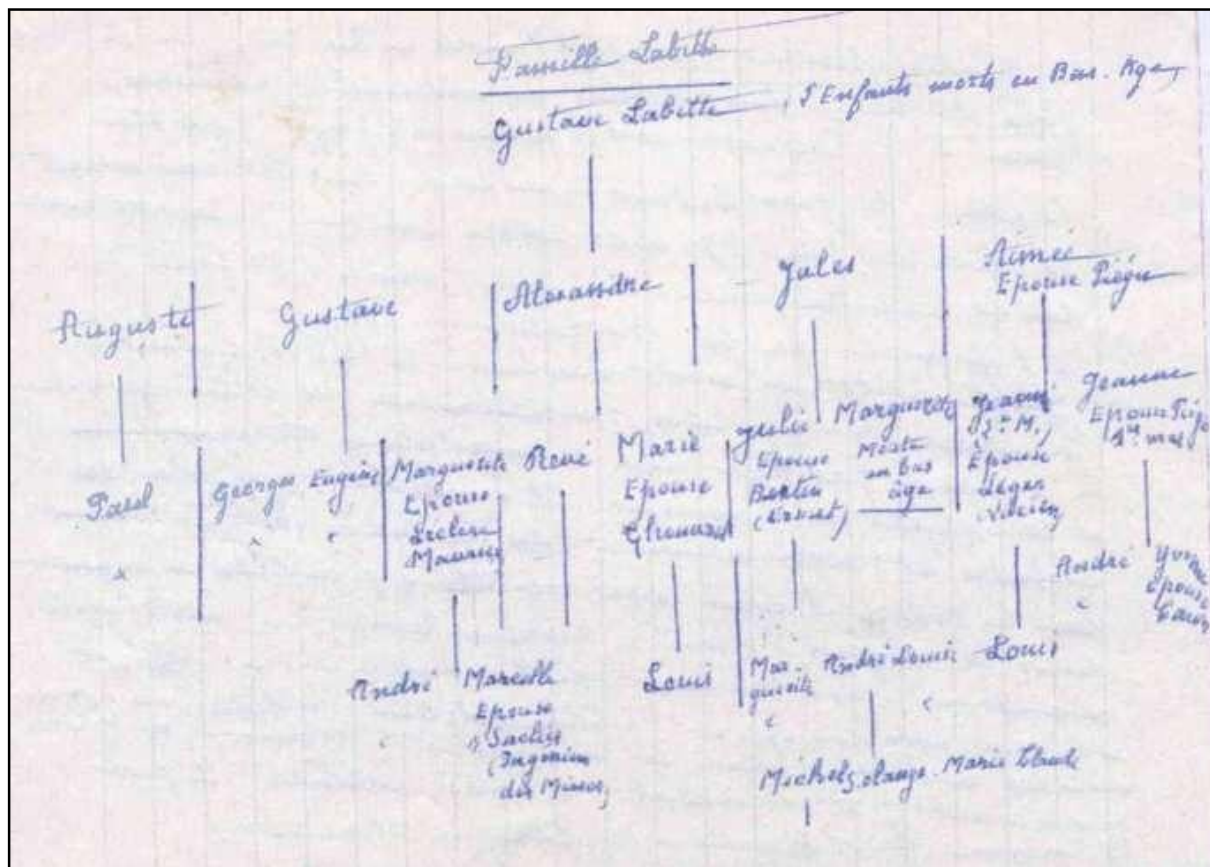 Famille Labitte
Gustave Labitte, 5 Enfants morts en Bas. Age,
Auguste
Gustave
Alexandre
Jules
Aimée
Epouse Piégu
Paul
Georges
Eugène
Marguerite
Epouse
Leclere
Maurice
René
Marie
Epouse
Julie
Epouse
Bertin
(Ernest)
Marguerite
Morte
en bas
âge
Jeanne
(2e M.)
Épouse
Léger
Lucien
Jeanne
Epouse
André
Yvonne
Epouse
André
Marcelle
Epouse
(Ingénieur
des Mines)
Louis
Mar-
guerite
André
Louis
Louis
Michel
Marie Claude